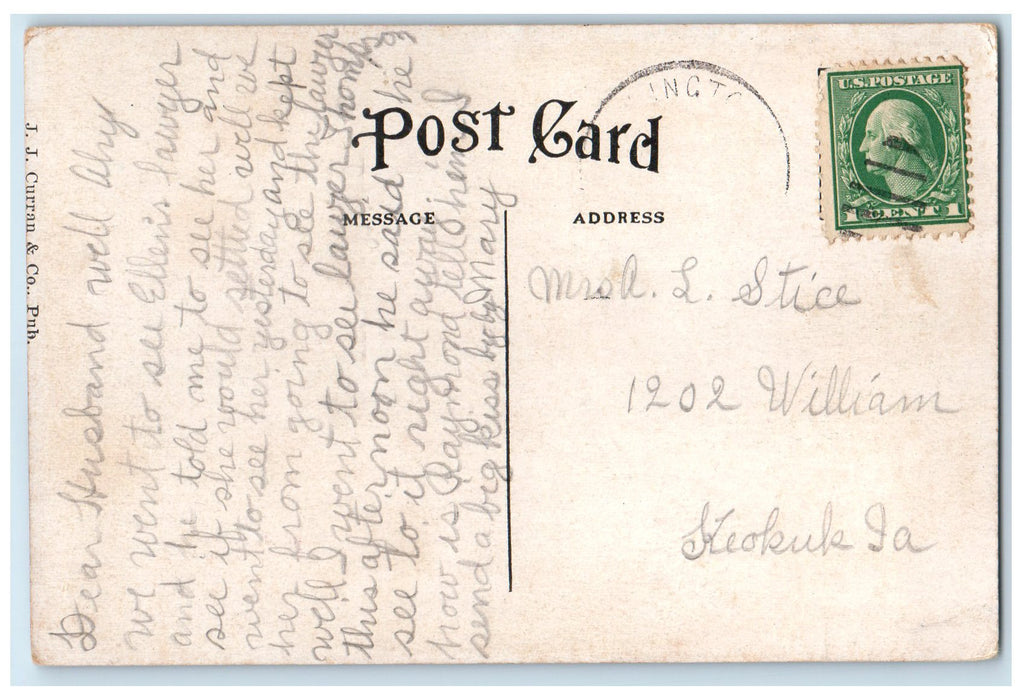 POST CARD
MESSAGE
ADDRESS
U.S. POSTAGE
1 CENT 1
INGTO
J. J. Curran & Co., Pub.
Dear Husband well Ahy
we went to see Ellens lawyer
and he told me to see her and
see if she would setted well we
went to see her yesterday and kept
her from going to see the lawyer
well I went to see lawyer
this after noon he said he
see to it right away
how is Raymond tell him I
send a big kiss by by Mary
Mrs A. L. Stice
1202 William
Keokuk Ia